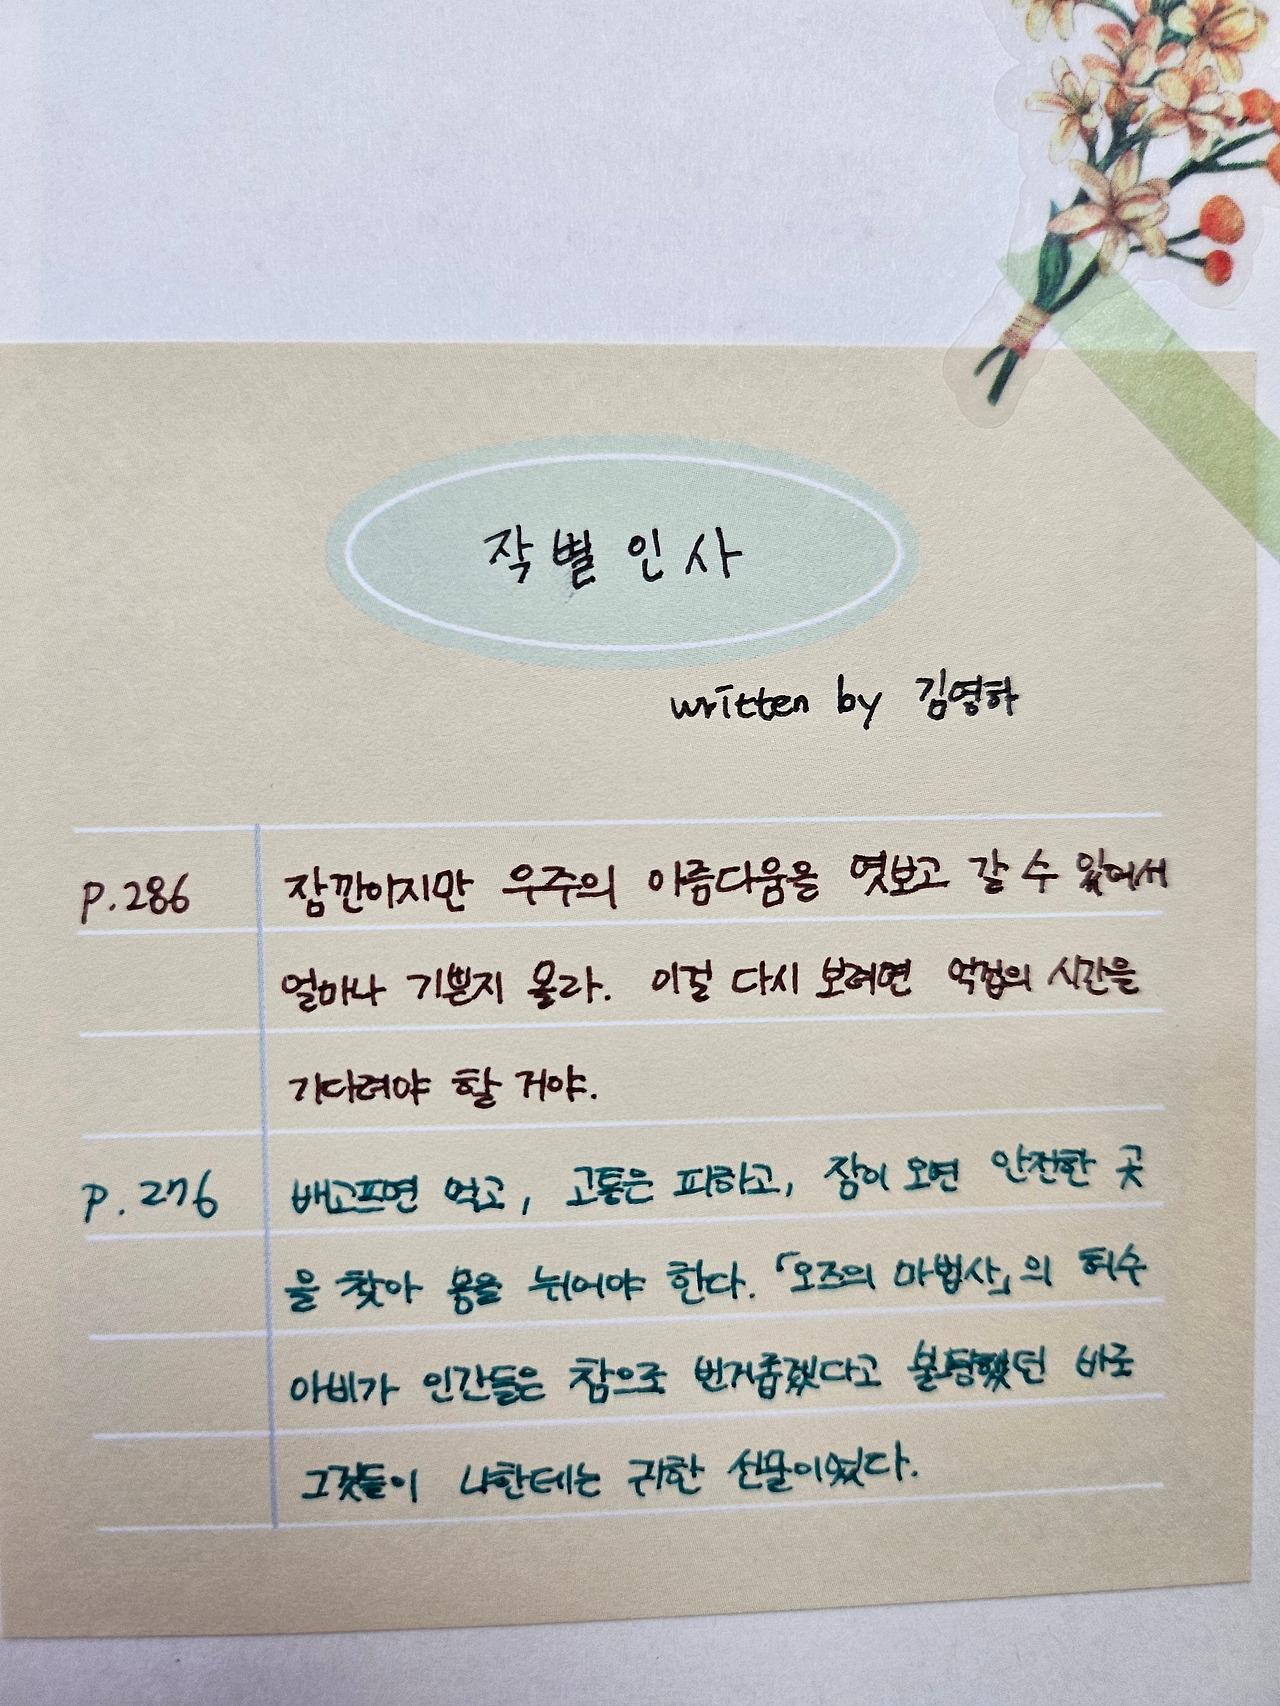 작별인사
written by 김영하
p.286 잠깐이지만 우주의 아름다움을 엿보고 갈 수 있어서
얼마나 기쁜지 몰라. 이걸 다시 보려면 억겁의 시간을
기다려야 할 거야.
p.276 배고프면 먹고, 고통은 피하고, 잠이 오면 안전한 곳
을 찾아 몸을 뉘어야 한다. 「오즈의 마법사」의 허수
아비가 인간들은 참으로 번거롭겠다고 불평했던 바로
그것들이 나한테는 귀한 선물이었다.